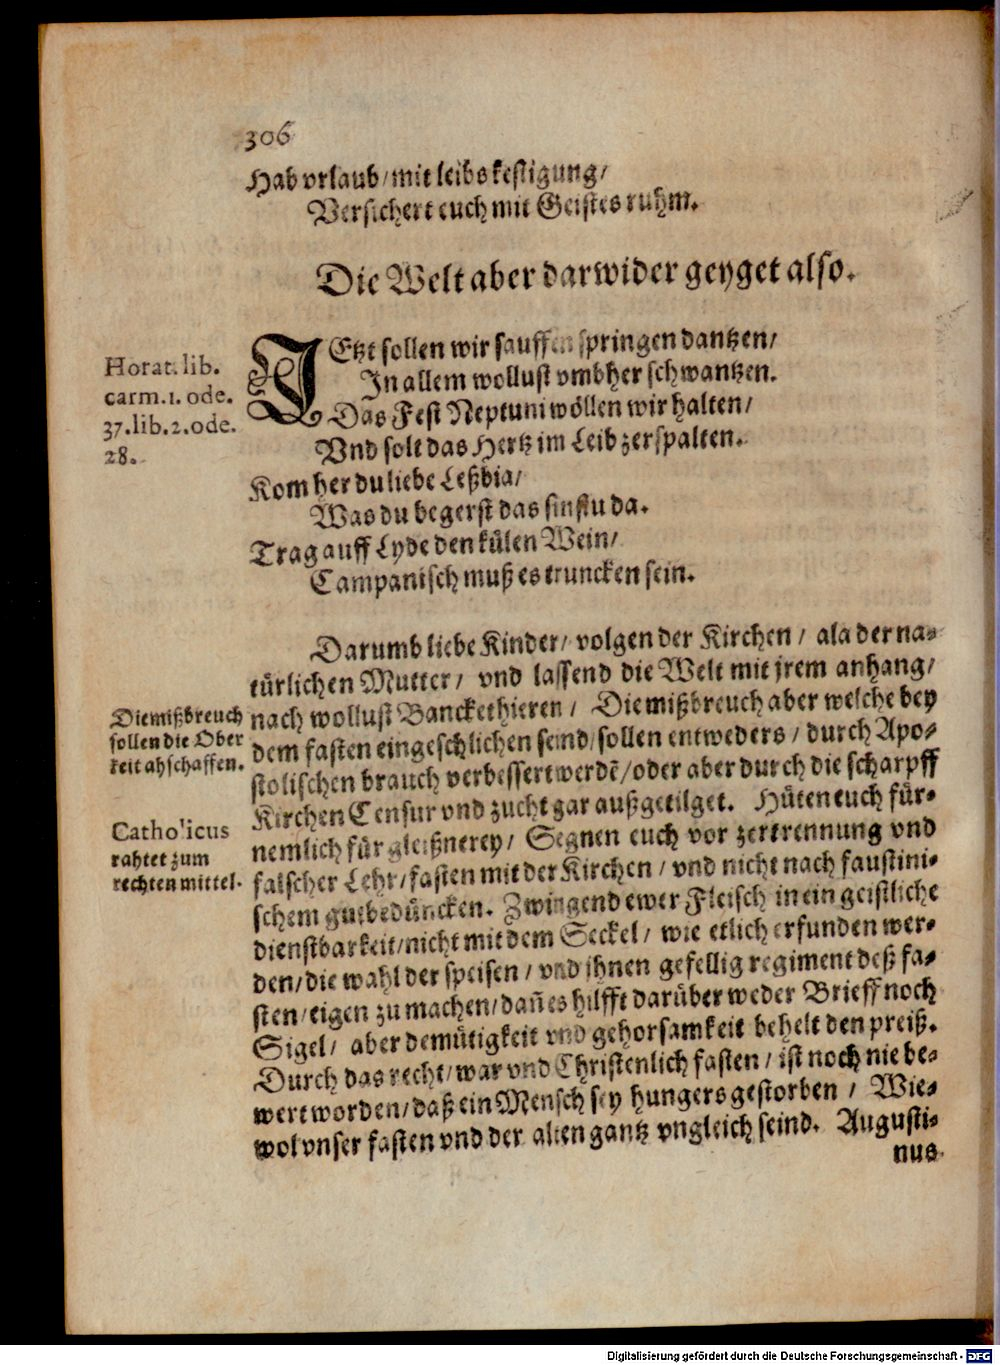 306
Hab vrlaub/ mit leibs kestigung/
Versichert euch mit Geistes ruhm.
Die Welt aber darwider geyget also.
Horat. lib.
carm. 1. ode.
37. lib. 2. ode.
28.
IEtzt sollen wir sauffen springen dantzen/
In allem wollust vmbher schwantzen.
Das Fest Neptuni wöllen wir halten/
Vnd solt das Hertz im Leib zerspalten.
Kom her du liebe Leßbia/
Was du begerst das sinstu da.
Trag auff Lyde den külen Wein/
Campanisch muß es truncken sein.
Darumb liebe Kinder/ volgen der Kirchen / ala der na-
türlichen Mutter/ vnd lassend die Welt mit jrem anhang/
nach wollust Banckethieren / Die mißbreuch aber welche bey
dem fasten eingeschlichen seind/ sollen entweders / durch Apo-
stolischen brauch verbessert werdē/ oder aber durch die scharpff
Kirchen Censur vnd zucht gar außgetilget. Hüten euch für-
nemlich für gleißnerey/ Segnen euch vor zertrennung vnd
falscher Lehr/ fasten mit der Kirchen / vnd nicht nach faustini-
schem gutbedüncken. Zwingend ewer Fleisch in ein geistliche
dienstbarkeit/ nicht mit dem Seckel/ wie etlich erfunden wer-
den/ die wahl der speisen / vnd ihnen gefellig regiment deß fa-
sten/ eigen zu machen/ dañ es hilfft darüber weder Brieff noch
Sigel/ aber demütigkeit vnd gehorsamkeit behelt den preiß.
Durch das recht/ war vnd Christenlich fasten / ist noch nie be-
wert worden/ daß ein Mensch sey hungers gestorben / Wie-
wol vnser fasten vnd der alten gantz vngleich seind. Augusti-
nus
Die mißbreuch
sollen die Ober
keit abschaffen.
Catholicus
rahtet zum
rechten mittel.
Digitalisierung gefördert durch die Deutsche Forschungsgemeinschaft - DFG